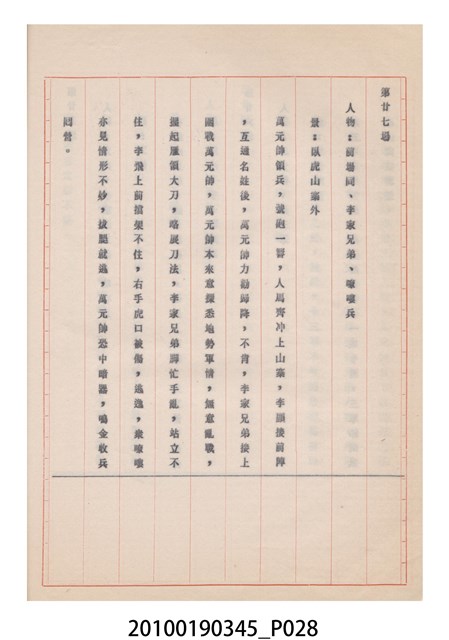 第廿七場
人物：前場同、李家兄弟、嘍囉兵
景：臥虎山寨外
萬元帥領兵，號砲一響，人馬齊冲上山寨，李顯接前陣
，互通名姓後，萬元帥力勸歸降，不肯，李家兄弟接上
團戰萬元帥，萬元帥本來意探悉地勢軍情，無意亂戰，
提起雁領大刀，略展刀法，李家兄弟脚忙手亂，站立不
住，李飛上前擋架不住，右手虎口被傷，逃逸，衆嘍囉
亦見情形不妙，拔腿就逃，萬元帥恐中暗器，鳴金收兵
回營。
20100190345_P028